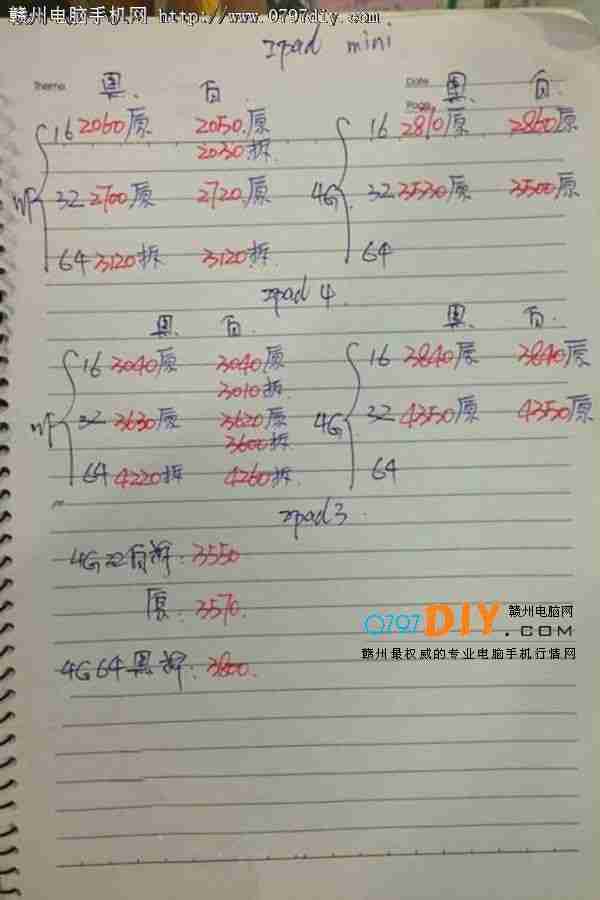 赣州电脑手机网 http://www.0797diy.com/
ipad mini
Thema 黑. 白. Date 黑. 白.
Page
16 2060原 2050.原 16 2810原 2860原
2030拆
wf 32 2700原 2720.原 4G 32 3530原 3500原
64 3120拆 3120拆 64
ipad 4.
黑. 白. 黑. 白.
16 3040原 3040原 16 3840原 3840原
3010拆
wf 32 3630原 3620原 4G 32 4350原 4350原
3600拆
64 4220拆 4260拆 64
ipad3.
4G 32白拆: 3550
原: 3570.
4G 64黑拆: 3800.
0797DIY.COM 赣州电脑网
赣州最权威的专业电脑手机行情网